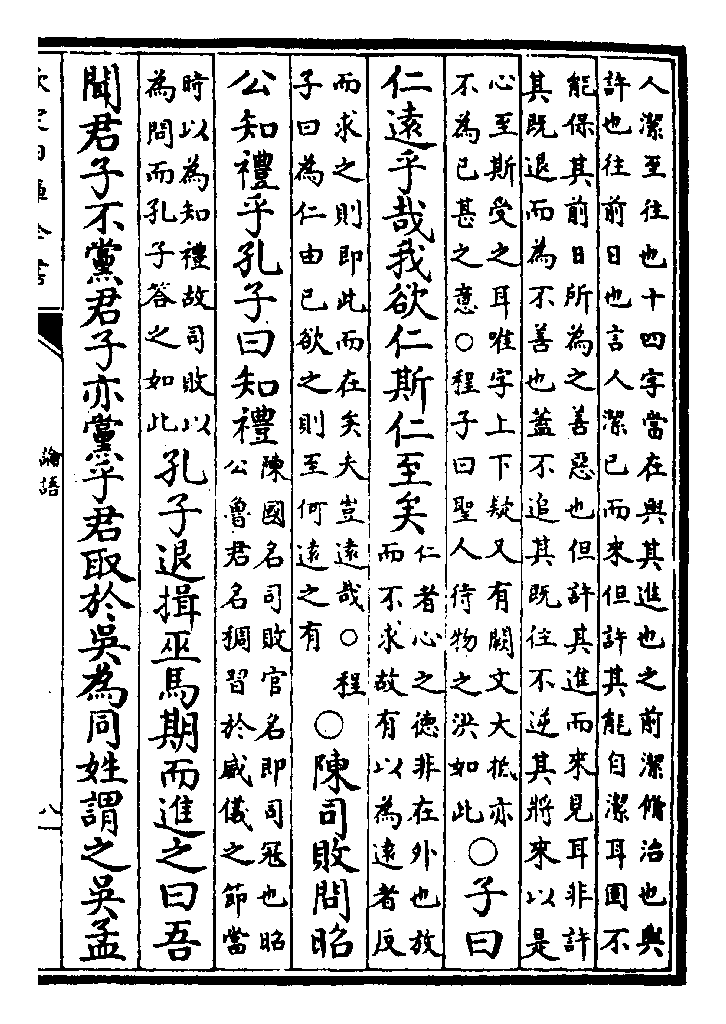 人潔至往也十四字當在與其進也之前潔脩治也與
許也往前日也言人潔己而來但許其能自潔耳固不
能保其前日所為之善惡也但許其進而來見耳非許
其既退而為不善也蓋不追其既往不逆其將來以是
心至斯受之耳唯字上下疑又有闕文大抵亦
不為已甚之意○程子曰聖人待物之洪如此
○子曰
仁遠乎哉我欲仁斯仁至矣
仁者心之德非在外也放
而不求故有以為遠者反
而求之則即此而在矣夫豈遠哉○程
子曰為仁由己欲之則至何遠之有
○陳司敗問昭
公知禮乎孔子曰知禮
陳國名司敗官名即司寇也昭
公魯君名稠習於威儀之節當
時以為知禮故司敗以
為問而孔子答之如此
孔子退揖巫馬期而進之曰吾
聞君子不黨君子亦黨乎君取於吳為同姓謂之吳孟
論語
八